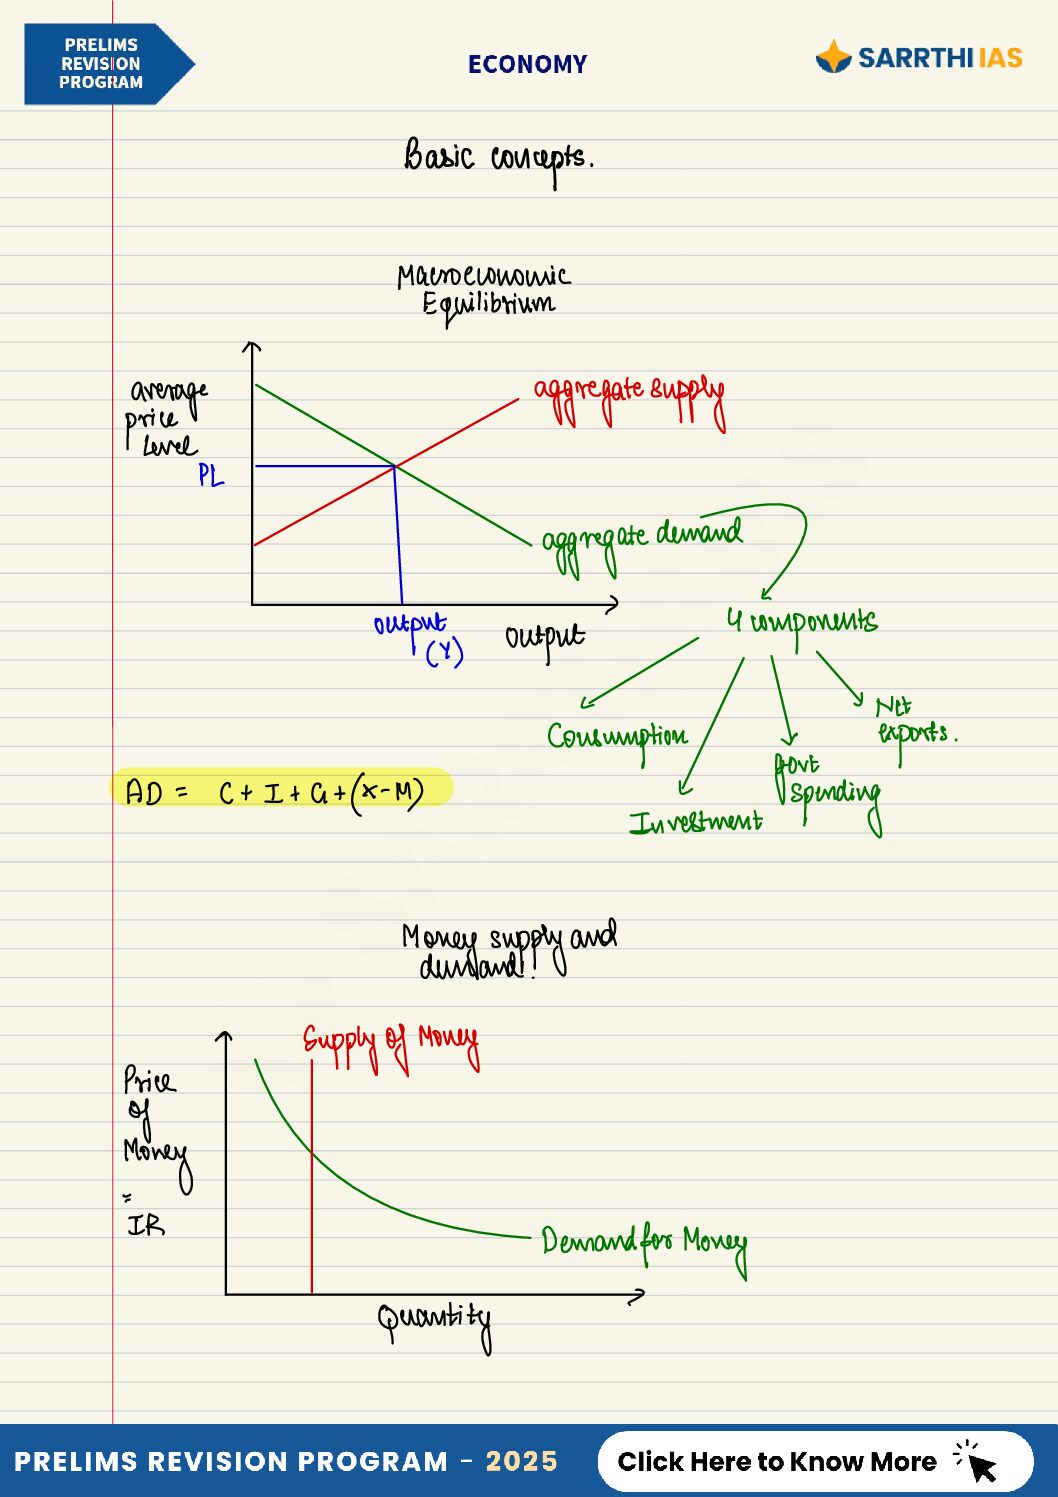 PRELIMS
REVISION
PROGRAM
ECONOMY
SARRTHI IAS
Basic concepts.
Macroeconomic
Equilibrium
average
price
level
PL
aggregate supply
aggregate demand
output
(Y)
output
4 components
Consumption
Investment
Govt
spending
Net
exports.
AD = C + I + G + (X - M)
Money supply and
demand!
Supply of Money
Price
of
Money
=
IR
Demand for Money
Quantity
PRELIMS REVISION PROGRAM - 2025
Click Here to Know More